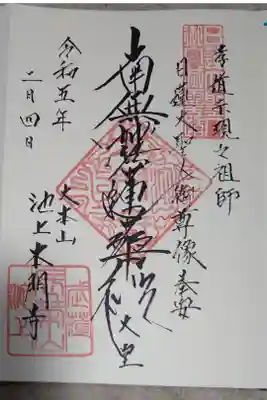 孝道示現之祖師
日蓮大聖人御尊像奉安
南無妙法蓮華経
大堂
令和五年
二月四日
大本山
池上本門寺